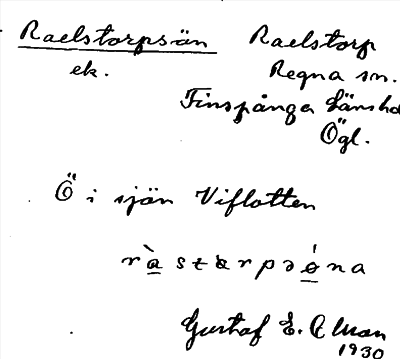 Raelstorpsön Raelstorp
ek. Regna sn.
Finspånga länshd
Ögl.
Ö i sjön Viflotten
Gustaf E. Alman
1930